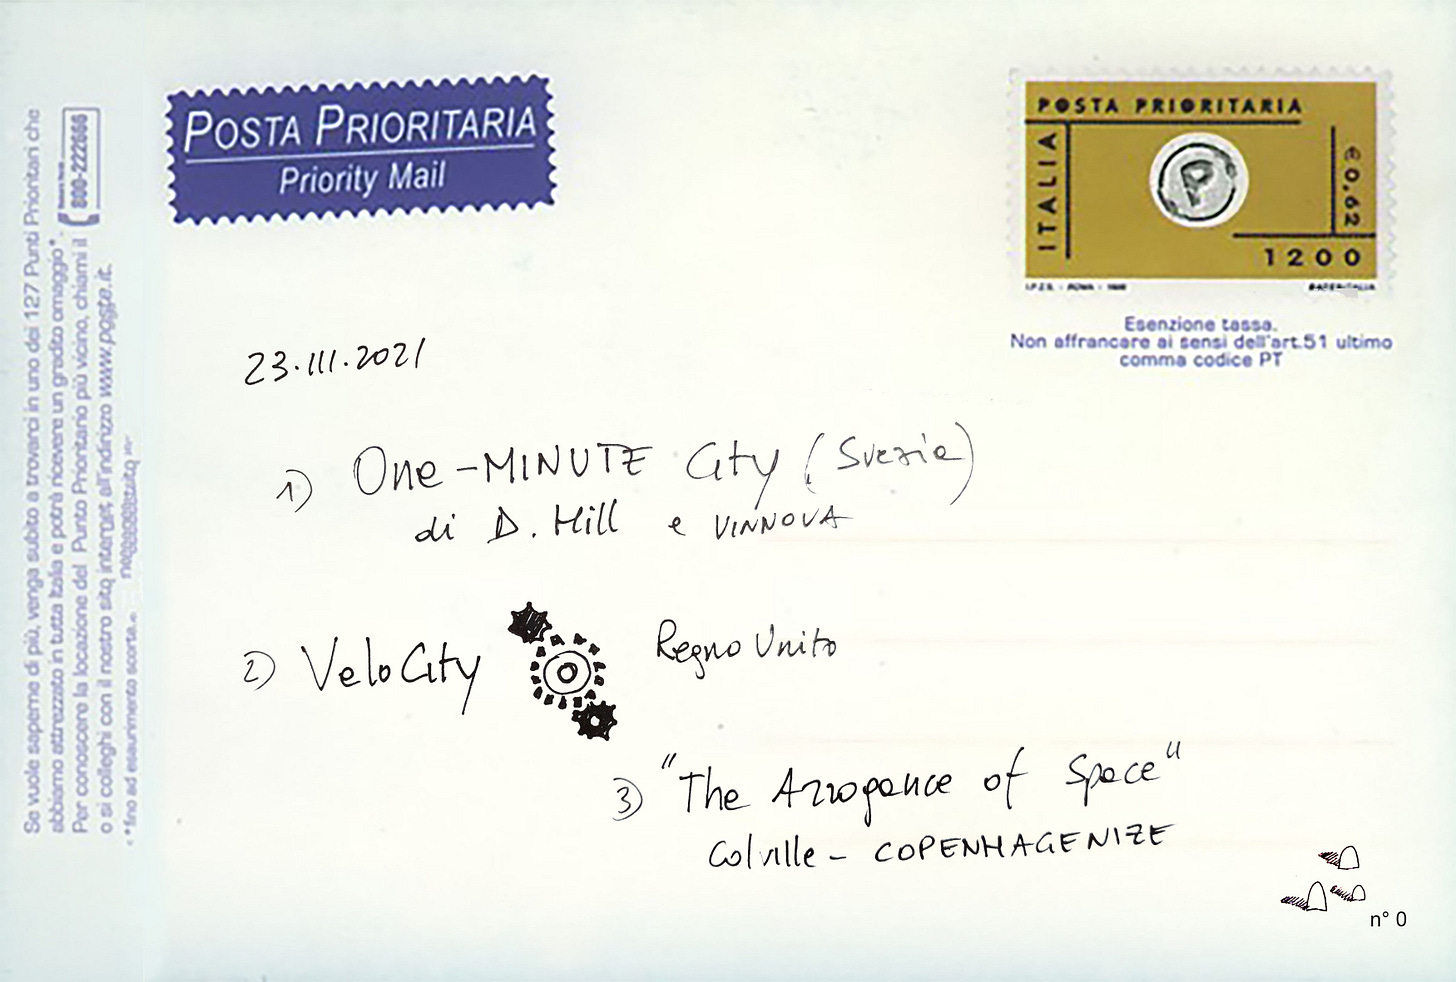 POSTA PRIORITARIA
Priority Mail
POSTA PRIORITARIA
ITALIA
€ 0,62
1200
I.P.Z.S. - ROMA -
Esenzione tassa.
Non affrancare ai sensi dell'art.51 ultimo
comma codice PT
Se vuole saperne di più, venga subito a trovarci in uno dei 127 Punti Prioritari che
abbiamo attrezzato in tutta Italia e potrà ricevere un gradito omaggio*.
Per conoscere la locazione del Punto Prioritario più vicino, chiami il
800-222666
o si colleghi con il nostro sito internet all'indirizzo www.poste.it.
*fino ad esaurimento scorte.
23.III.2021
1) One-MINUTE City (Svezia)
di D. Hill e VINNOVA
2) VeloCity Regno Unito
3) "The Arrogance of Space"
Colville - COPENHAGENIZE
n° 0